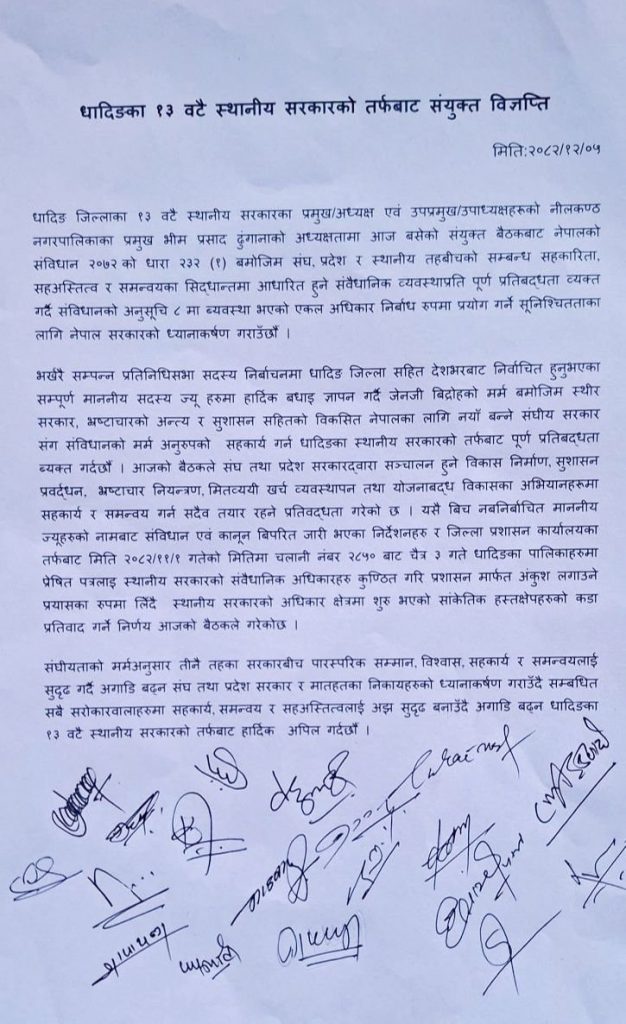 धादिङका १३ वटै स्थानीय सरकारको तर्फबाट संयुक्त विज्ञप्ति
मिति:२०८२/१२/०५
धादिङ जिल्लाका १३ वटै स्थानीय सरकारका प्रमुख/अध्यक्ष एवं उपप्रमुख/उपाध्यक्षहरूको नीलकण्ठ
नगरपालिकाका प्रमुख भीम प्रसाद ढुंगानाको अध्यक्षतामा आज बसेको संयुक्त बैठकबाट नेपालको
संविधान २०७२ को धारा २३२ (१) बमोजिम संघ, प्रदेश र स्थानीय तहबीचको सम्बन्ध सहकारिता,
सहअस्तित्व र समन्वयका सिद्धान्तमा आधारित हुने संवैधानिक व्यवस्थाप्रति पूर्ण प्रतिबद्धता व्यक्त
गर्दै संविधानको अनुसूचि ८ मा ब्यवस्था भएको एकल अधिकार निर्बाध रुपमा प्रयोग गर्ने सूनिश्चितताका
लागि नेपाल सरकारको ध्यानाकर्षण गराउँछौं ।
भर्खरै सम्पन्न प्रतिनिधिसभा सदस्य निर्बाचनमा धादिङ जिल्ला सहित देशभरबाट निर्वाचित हुनुभएका
सम्पूर्ण माननीय सदस्य ज्यू हरुमा हार्दिक बधाइ ज्ञापन गर्दै जेनजी बिद्रोहको मर्म बमोजिम स्थीर
सरकार, भ्रष्टाचारको अन्त्य र सुशासन सहितको विकसित नेपालका लागि नयाँ बन्ने संघीय सरकार
संग संविधानको मर्म अनुरुपको सहकार्य गर्न धादिङका स्थानीय सरकारको तर्फबाट पूर्ण प्रतिबद्धता
ब्यक्त गर्दछौं । आजको बैठकले संघ तथा प्रदेश सरकारद्वारा सञ्चालन हुने विकास निर्माण, सुशासन
प्रवर्द्धन, भ्रष्टाचार नियन्त्रण, मितव्ययी खर्च व्यवस्थापन तथा योजनाबद्ध विकासका अभियानहरूमा
सहकार्य र समन्वय गर्न सदैव तयार रहने प्रतिवद्धता गरेको छ । यसै बिच नबनिर्वाचित माननीय
ज्यूहरुको नामबाट संविधान एवं कानून बिपरित जारी भएका निर्देशनहरु र जिल्ला प्रशासन कार्यालयका
तर्फबाट मिति २०८२/११/१ गतेको मितिमा चलानी नंबर २८५० बाट चैत्र ३ गते धादिङका पालिकाहरुमा
प्रेषित पत्रलाइ स्थानीय सरकारको संवैधानिक अधिकारहरु कुण्ठित गरि प्रशासन मार्फत अंकुश लगाउने
प्रयासका रुपमा लिँदै स्थानीय सरकारको अधिकार क्षेत्रमा शुरु भएको सांकेतिक हस्तक्षेपहरुको कडा
प्रतिवाद गर्ने निर्णय आजको बैठकले गरेकोछ ।
संघीयताको मर्मअनुसार तीनै तहका सरकारबीच पारस्परिक सम्मान, विश्वास, सहकार्य र समन्वयलाई
सुदृढ गर्दै अगाडि बढ्न संघ तथा प्रदेश सरकार र मातहतका निकायहरुको ध्यानाकर्षण गराउँदै सम्बधित
सबै सरोकारवालाहरुमा सहकार्य, समन्वय र सहअस्तित्वलाई अझ सुदृढ बनाउँदै अगाडि बढ्न धादिङका
१३ वटै स्थानीय सरकारको तर्फबाट हार्दिक अपिल गर्दछौं ।